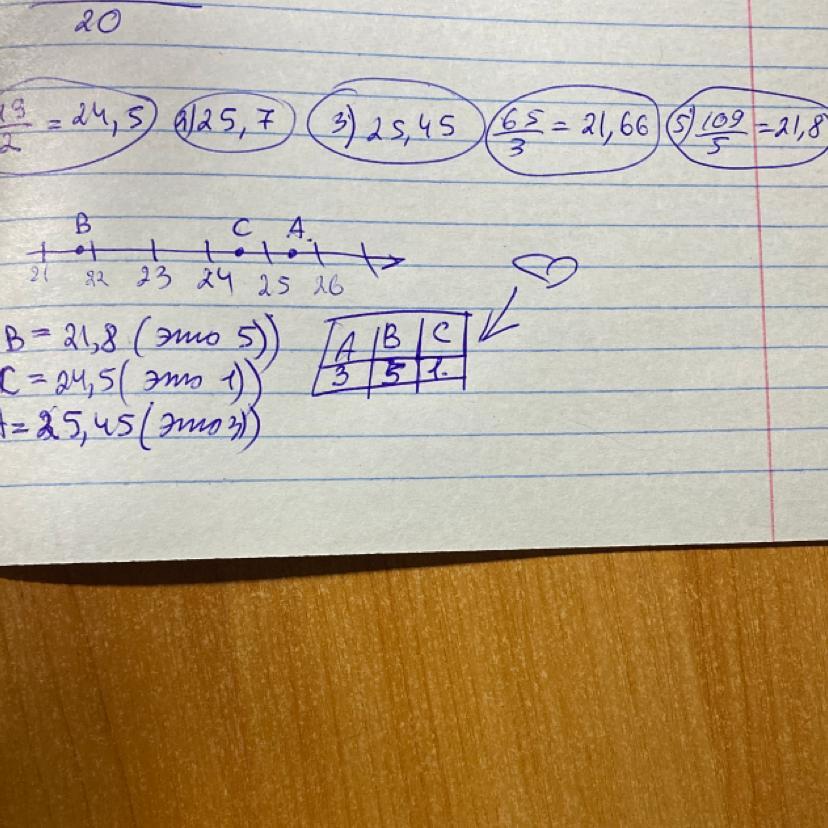 20
19/2 = 24,5 2) 25,7 3) 25,45 65/3 = 21,66 5) 109/5 = 21,8
B C A
21 22 23 24 25 26
B = 21,8 (это 5)
C = 24,5 (это 1)
A = 25,45 (это 3)
A B C
3 5 1